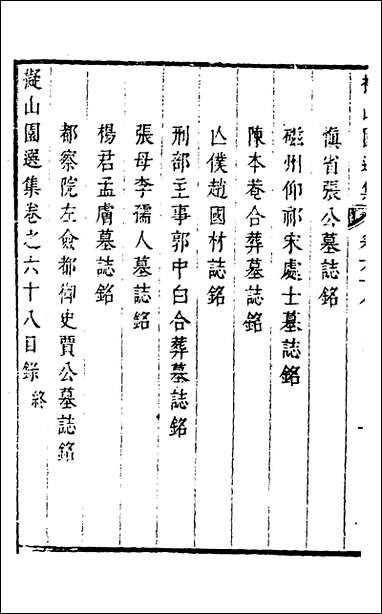 擬山園選集 卷六十八
慎省張公墓誌銘
磁州仰祁宋處士墓誌銘
陳本菴合葬墓誌銘
亡僕趙國材誌銘
刑部主事郭中白合葬墓誌銘
張母李孺人墓誌銘
楊君孟膚墓誌銘
都察院左僉都御史賈公墓誌銘
擬山園選集卷之六十八目錄 終